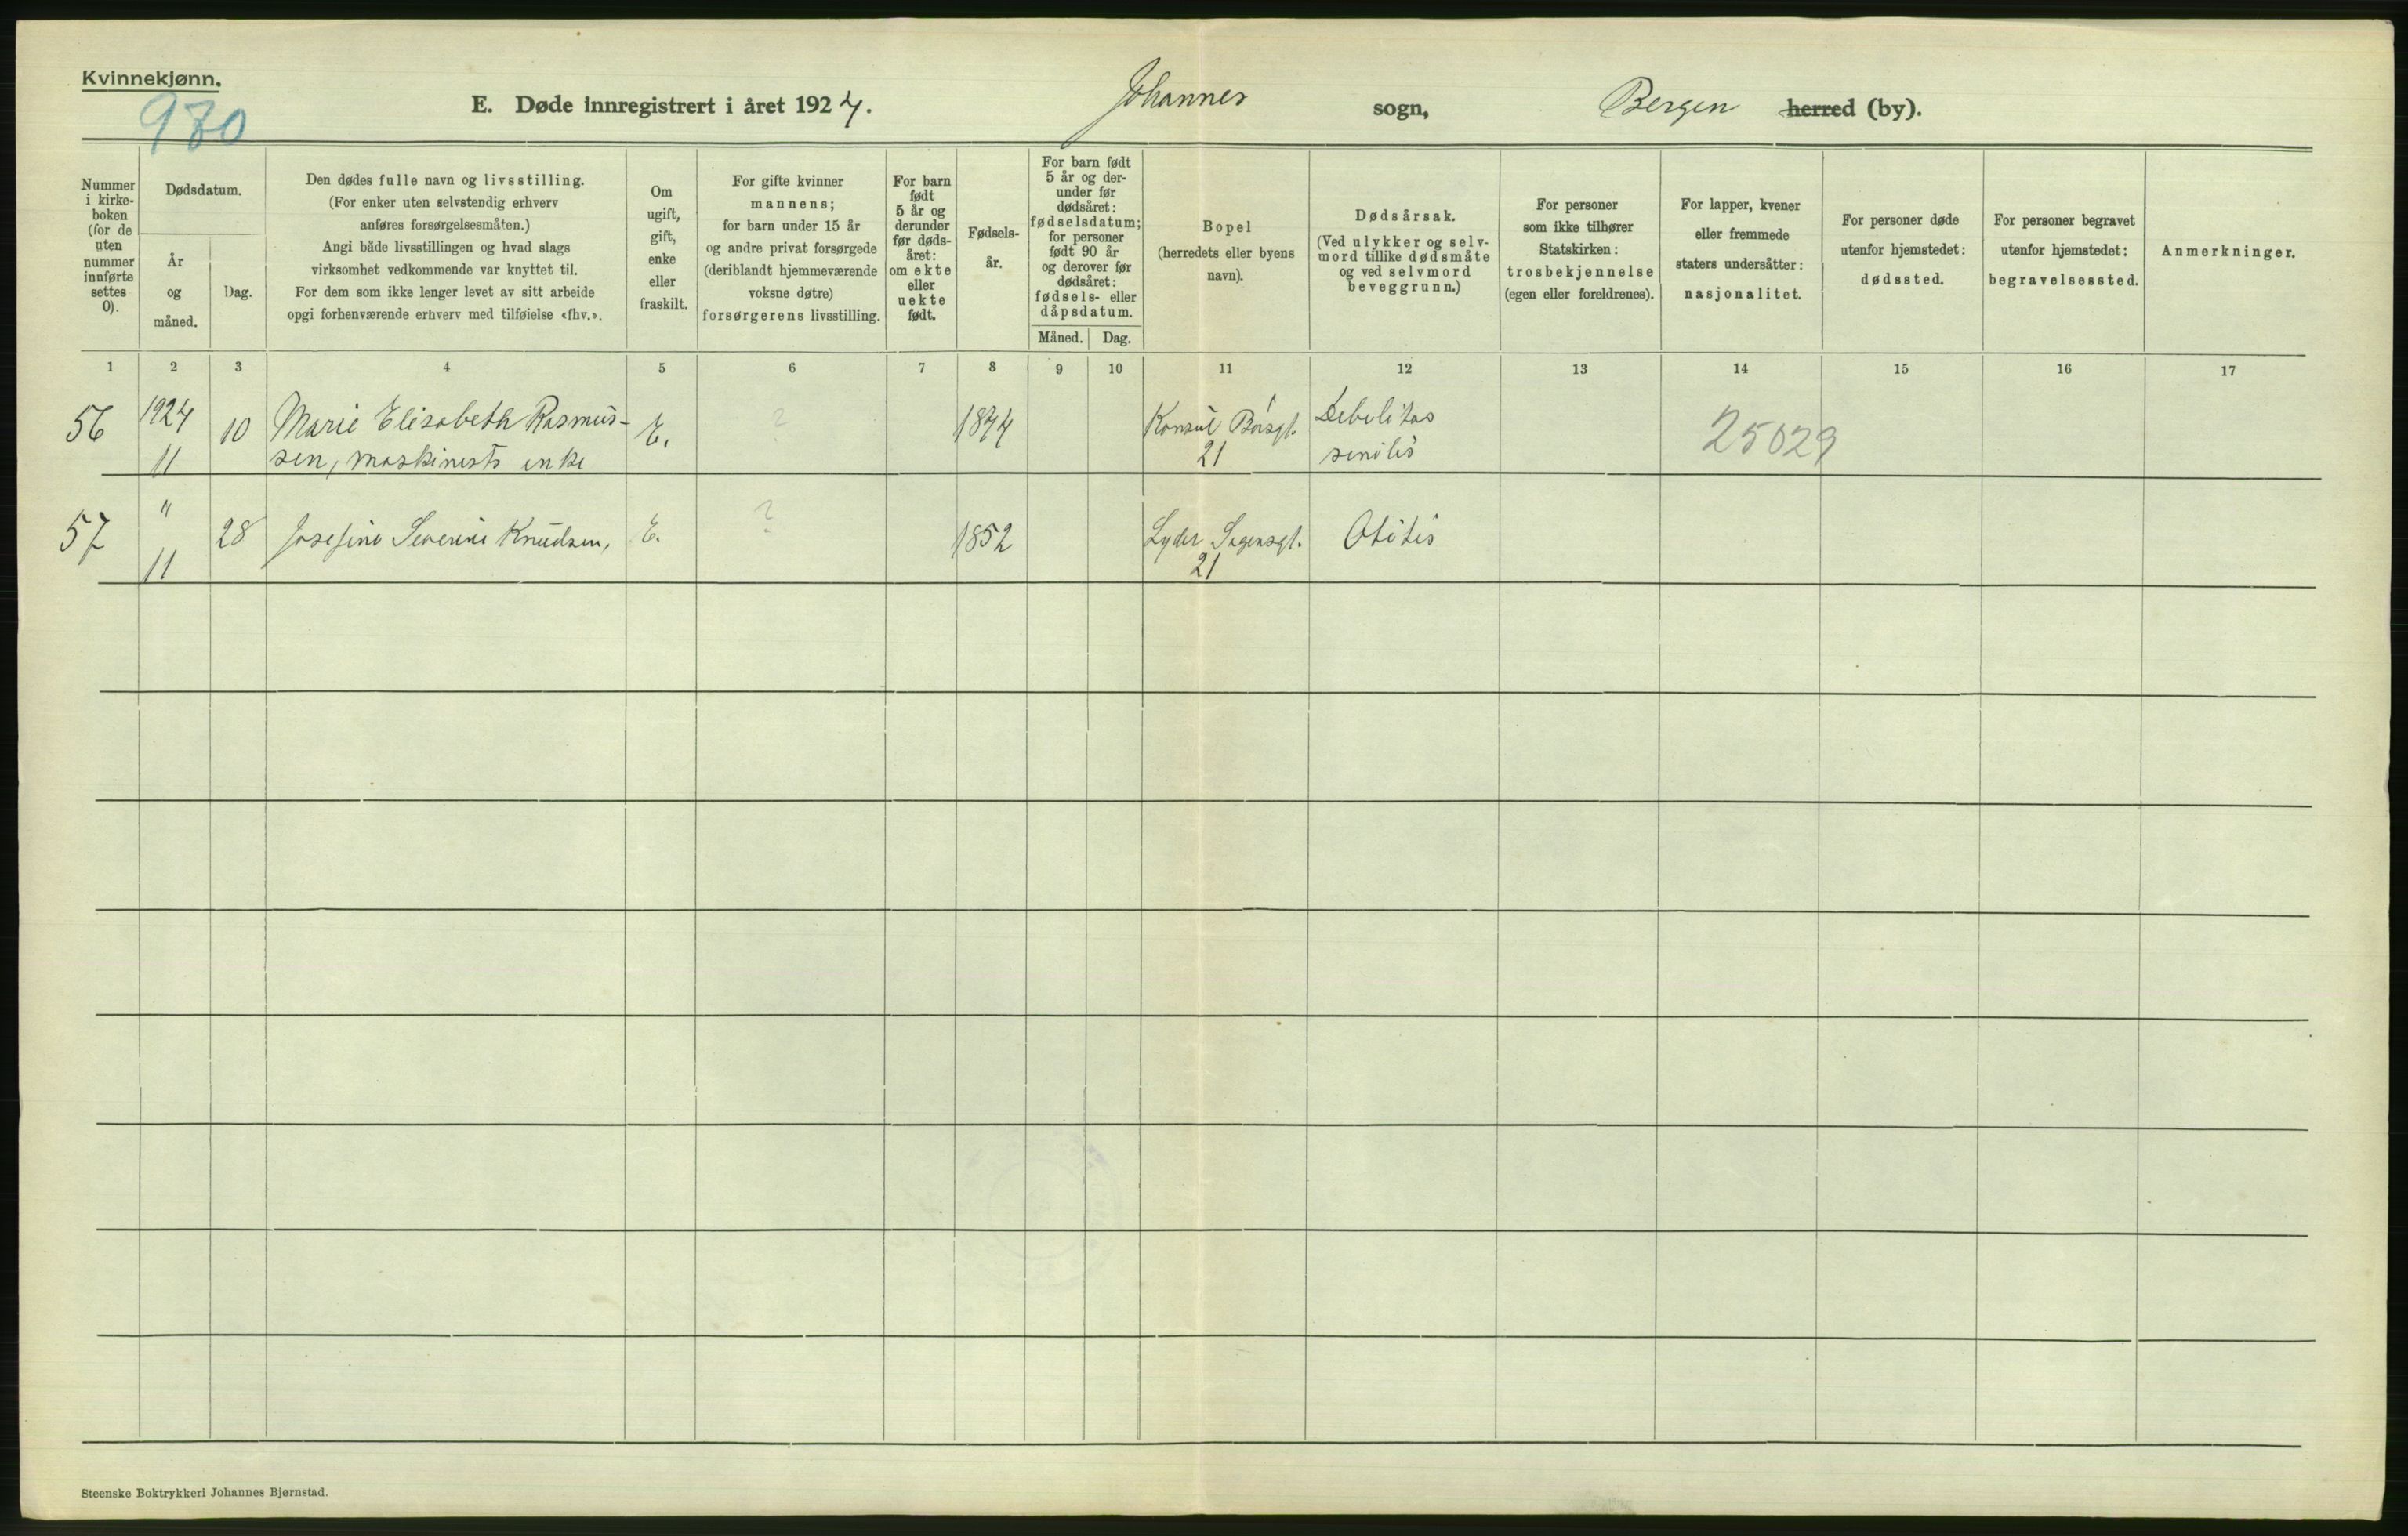 Kvinnekjønn.
980
E. Døde innregistrert i året 1924. Johannes sogn, Bergen herred (by).
Nummer i kirke-boken (for de uten nummer innførte settes 0).
Dødsdatum.
År og måned.
Dag.
Den dødes fulle navn og livsstilling.
(For enker uten selvstendig erhverv
anføres forsørgelsesmåten.)
Angi både livsstillingen og hvad slags
virksomhet vedkommende var knyttet til.
For dem som ikke lenger levet av sitt arbeide
opgi forhenværende erhverv med tilføielse «fhv.».
Om ugift, gift, enke eller fraskilt.
For gifte kvinner
mannens;
for barn under 15 år
og andre privat forsørgede
(deriblandt hjemmeværende
voksne døtre)
forsørgerens livsstilling.
For barn født 5 år og derunder før døds-året: om ekte eller uekte født.
Fødsels-år.
For barn født 5 år og der-under før dødsåret: fødselsdatum; for personer født 90 år og derover før dødsåret: fødsels- eller dåpsdatum.
Måned. Dag.
Bopel
(herredets eller byens
navn).
Dødsårsak.
(Ved ulykker og selv-
mord tillike dødsmåte
og ved selvmord
beveggrunn.)
For personer
som ikke tilhører
Statskirken:
trosbekjennelse
(egen eller foreldrenes).
For lapper, kvener
eller fremmede
staters undersåtter:
nasjonalitet.
For personer døde
utenfor hjemstedet:
dødssted.
For personer begravet
utenfor hjemstedet:
begravelsessted.
Anmerkninger.
1 2 3 4 5 6 7 8 9 10 11 12 13 14 15 16 17
56 1924 10 Marie Elisabeth Rasmus- E. ? 1844 Konsul Børsgt. Debilitas 25029
11 sen, maskinists enke 21 senilis
57 " 28 Josefine Severine Knudsen, E. ? 1852 Lyder Sagensgt. Otitis
11 21
Steenske Boktrykkeri Johannes Bjørnstad.